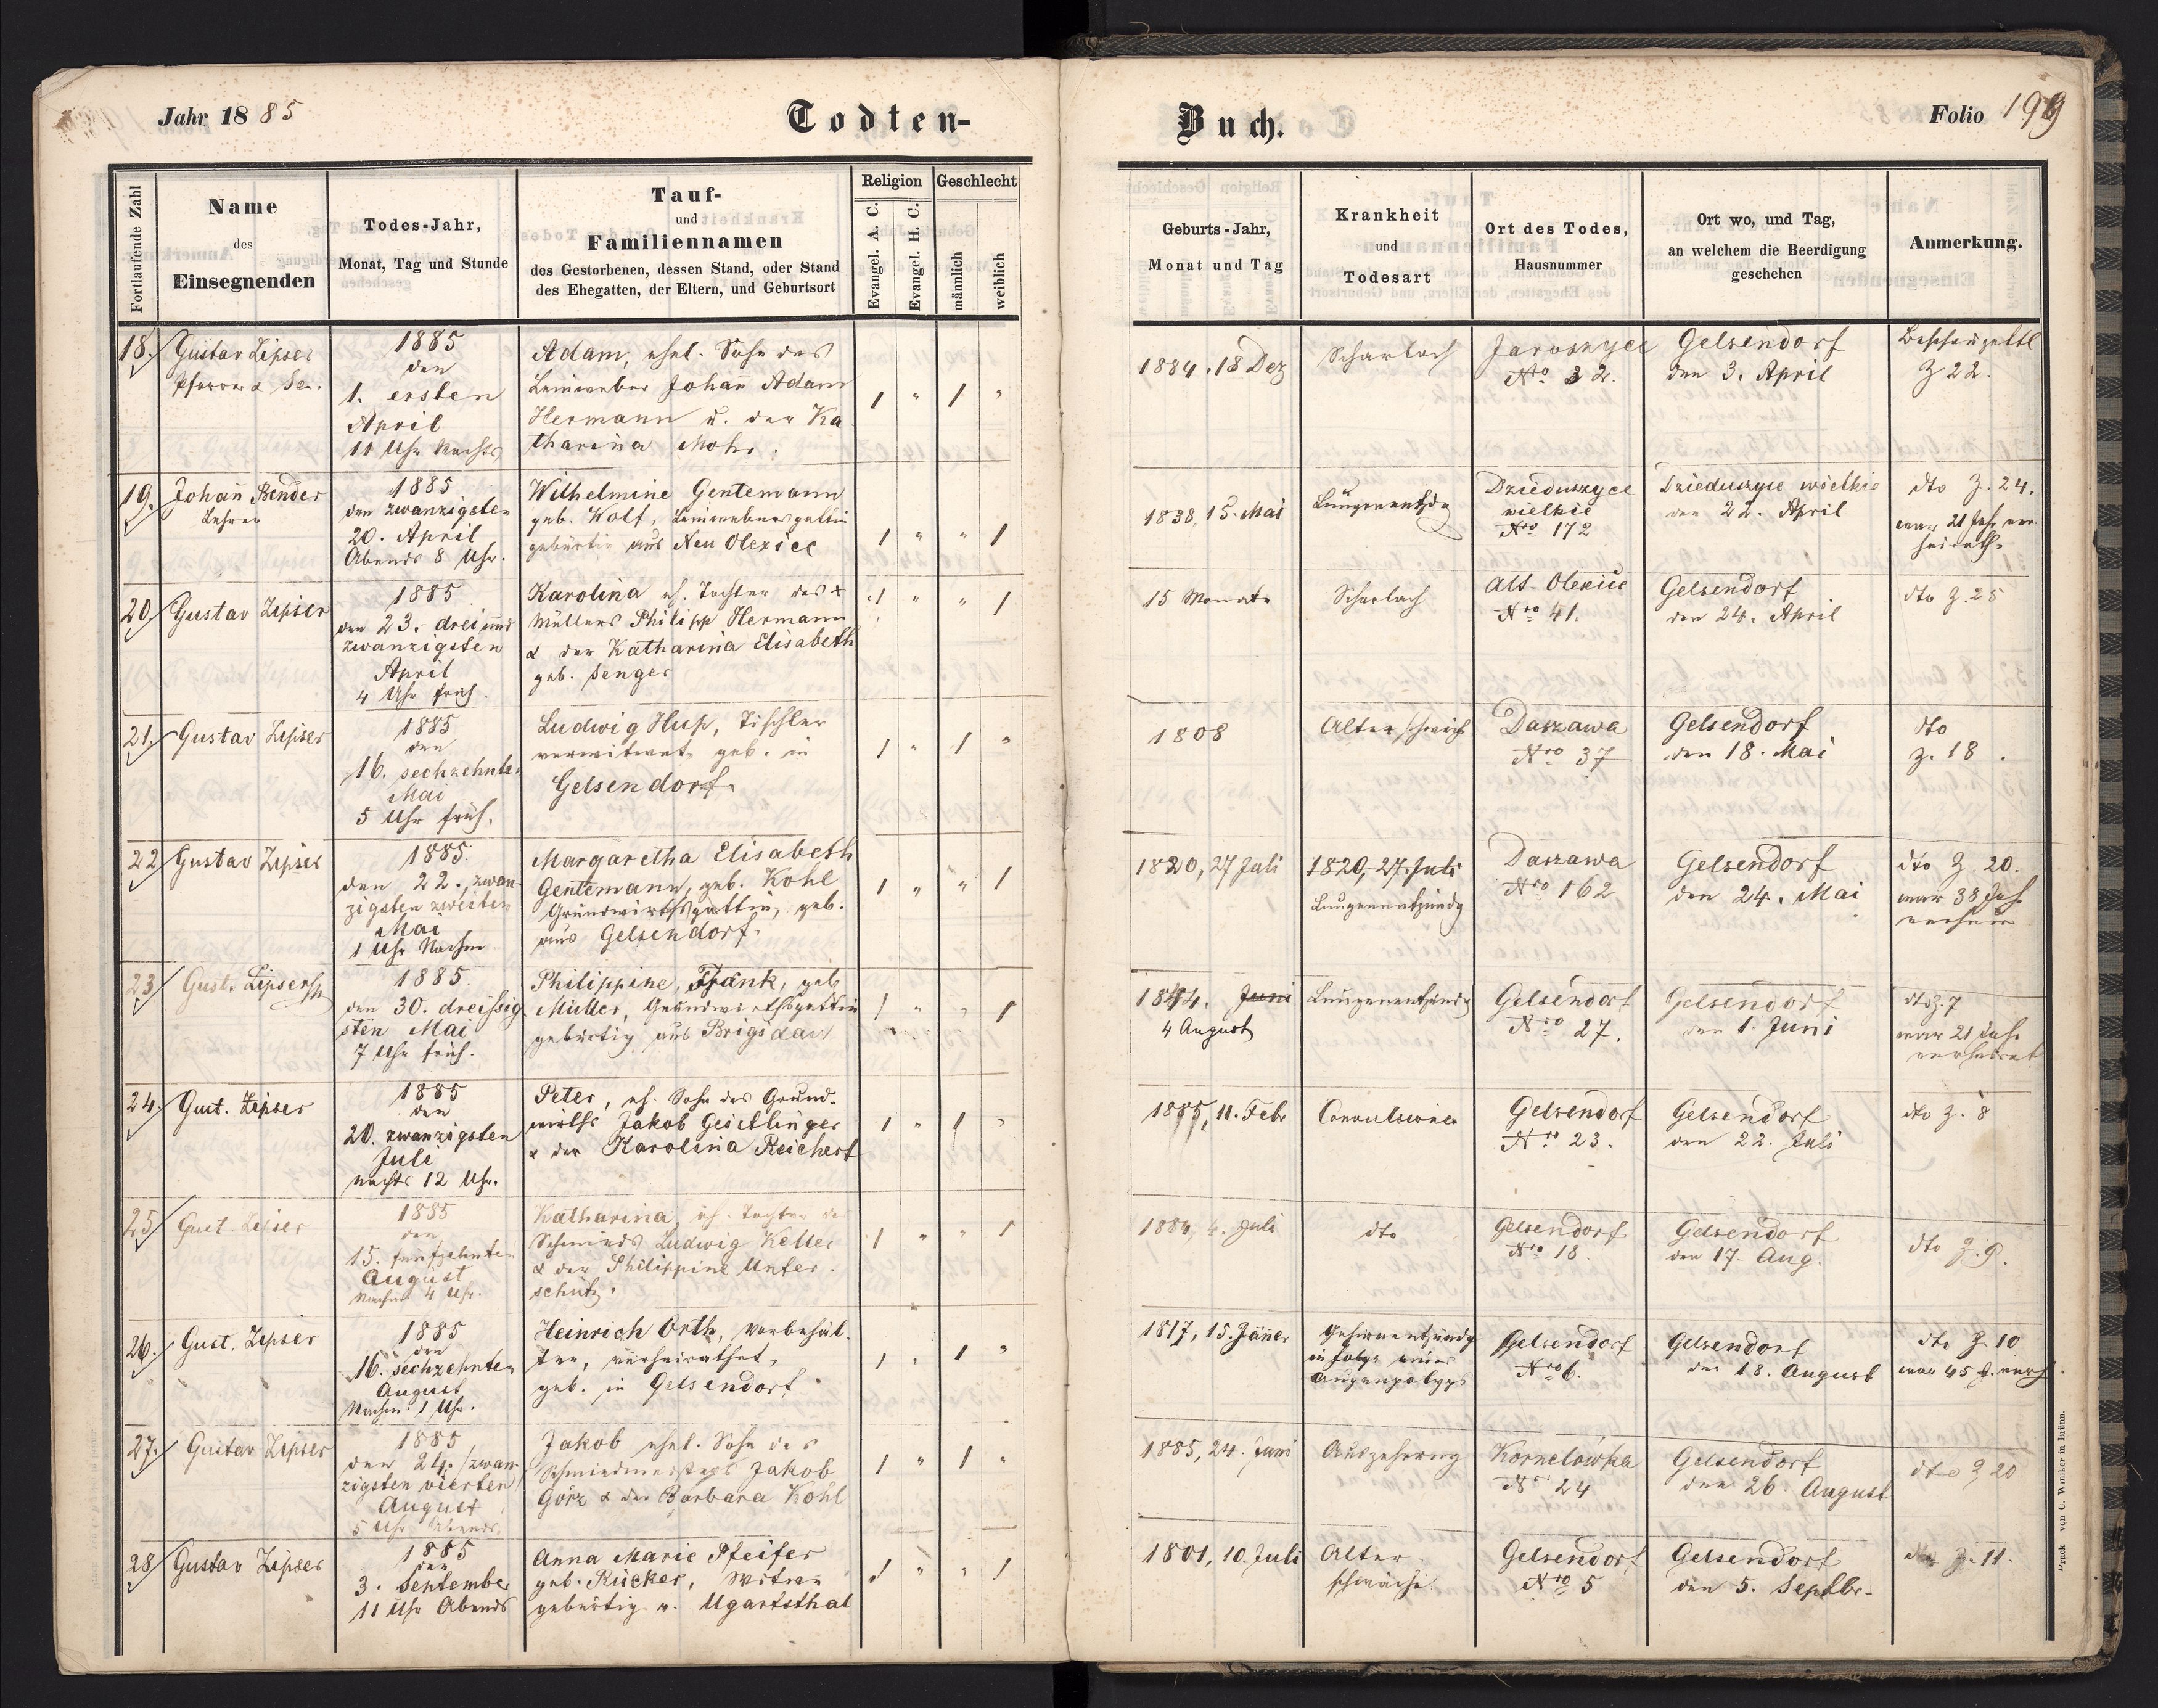 Jahr 1885
Todten-
Buch.
Folio 199
Fortlaufende Zahl
Name
des
Einsegnenden
Todes-Jahr,
Monat, Tag und Stunde
Tauf-
und
Familiennamen
des Gestorbenen, dessen Stand, oder Stand
des Ehegatten, der Eltern, und Geburtsort
Religion
Evangel. A. C.
Evangel. H. C.
Geschlecht
männlich
weiblich
Geburts-Jahr,
Monat und Tag
Krankheit
und
Todesart
Ort des Todes,
Hausnummer
Ort wo, und Tag,
an welchem die Beerdigung
geschehen
Anmerkung.
18.
Gustav Zipser
Pfarrer & Sen.
1885
den
1. ersten
April
10 Uhr Nachts
Adam, ehel. Sohn des
Leinweber Johann Adam
Hermann u. der Ka
tharina Mohr.
1 " 1 "
1884. 18 Dez
Scharlach
Jaroszyce
Nro 32.
Gelsendorf
den 3. April
Beschauzettl
Z 22.
19.
Johann Bender
Lehrer
1885
den zwanzigsten
20. April
Abends 8 Uhr.
Wilhelmine Gentemann
geb. Wolf, Leinwebersgattin
gebürtig aus Neu Olexice
1 " " 1
1838, 15. Mai
Lungenentzdg
Dzieduszyce
wielkie
Nro 172
Dzieduszyce wielkie
den 22. April
dto Z. 24.
war 21 Jahr ver
heirath.
20.
Gustav Zipser
1885
den 23. drei und
zwanzigsten
April
4 Uhr früh.
Karolina eh. Tochter des
Müllers Philipp Hermann
& der Katharina Elisabeth
geb. Senger
1 " " 1
15 Monate
Scharlach
Alt-Olexice
Nro 41.
Gelsendorf
den 24. April
dto Z. 25
21.
Gustav Zipser
1885
den
16. sechzehnten
Mai
5 Uhr früh.
Ludwig Hup, Tischler
verwitwet, geb. in
Gelsendorf.
1 " 1 "
1808
Altersschwäche
Daszawa
Nro 37
Gelsendorf
den 18. Mai
dto
Z. 18.
22
Gustav Zipser
1885
den 22., zwan-
zigsten zweiten
Mai
1 Uhr Nachm
Margaretha Elisabeth
Gentemann, geb. Kohl
Grundwirthsgattin, geb.
aus Gelsendorf.
1 " " 1
1820, 27 Juli
1820, 27. Juli
Lungenentzündg
Daszawa
Nro 162
Gelsendorf
den 24. Mai
dto Z 20.
war 38 Jah
23
Gust. Zipser
1885
den 30. dreissig
sten Mai
7 Uhr früh.
Philippine, Frank, geb
Müller, Grundwirthsgattin
gebürtig aus Brigidau
1 " " 1
1844. Juni
4 August
Lungenentzündg
Gelsendorf
Nro 27.
Gelsendorf
den 1. Juni
dto Z. 7
war 21 Jahr
verheirat
24.
Gust. Zipser
1885
den
20. zwanzigsten
Juli
nachts 12 Uhr.
Peter, eh. Sohn des Grund-
wirths Jakob Geistlinger
& der Karolina Reichert
1 " 1 "
1885, 11. Febr
Convulsionen
Gelsendorf
Nro 23.
Gelsendorf
den 22. Juli
dto Z. 8
25
Gust. Zipser
1885
den
15. fünfzehnten
August
Nachm 4 Uhr.
Katharina, eh. Tochter des
Schmieds Ludwig Keller
& der Philippine Unter-
schütz.
1 " " 1
1884, 4. Juli
dto
Gelsendorf
Nro 18.
Gelsendorf
den 17. Aug.
dto Z. 9.
26.
Gust. Zipser
1885
den
16. sechzehnten
August
Nachm. 1 Uhr.
Heinrich Orth, Vorbehäl-
ter, verheirathet,
geb. in Gelsendorf
1 " 1 "
1817, 15. Jänner
Gehirnentzündg
in folge eines
Augenpolyps
Gelsendorf
Nro 6.
Gelsendorf
den 18. August
dto Z. 10
war 45 J. verh.
27.
Gustav Zipser
1885
den 24. /zwan-
zigsten vierten/
August
5 Uhr Abends
Jakob ehel. Sohn des
Schmiedmeisters Jakob
Görz & der Barbara Kohl
1 " 1 "
1885, 24. Juni
Auszehrung
Kornelowka
Nro 24
Gelsendorf
den 26. August
dto Z 20
28
Gustav Zipser
1885
den
3. September
11 Uhr Abends
Anna Marie Pfeifer
geb. Kücker, Witwe
gebürtig a. Ugartsthal
1 " " 1
1801, 10. Juli
Alters-
schwäche
Gelsendorf
Nro 5
Gelsendorf
den 5. Septbr.
dto Z. 11.
Druck von C. Winiker in Brünn.